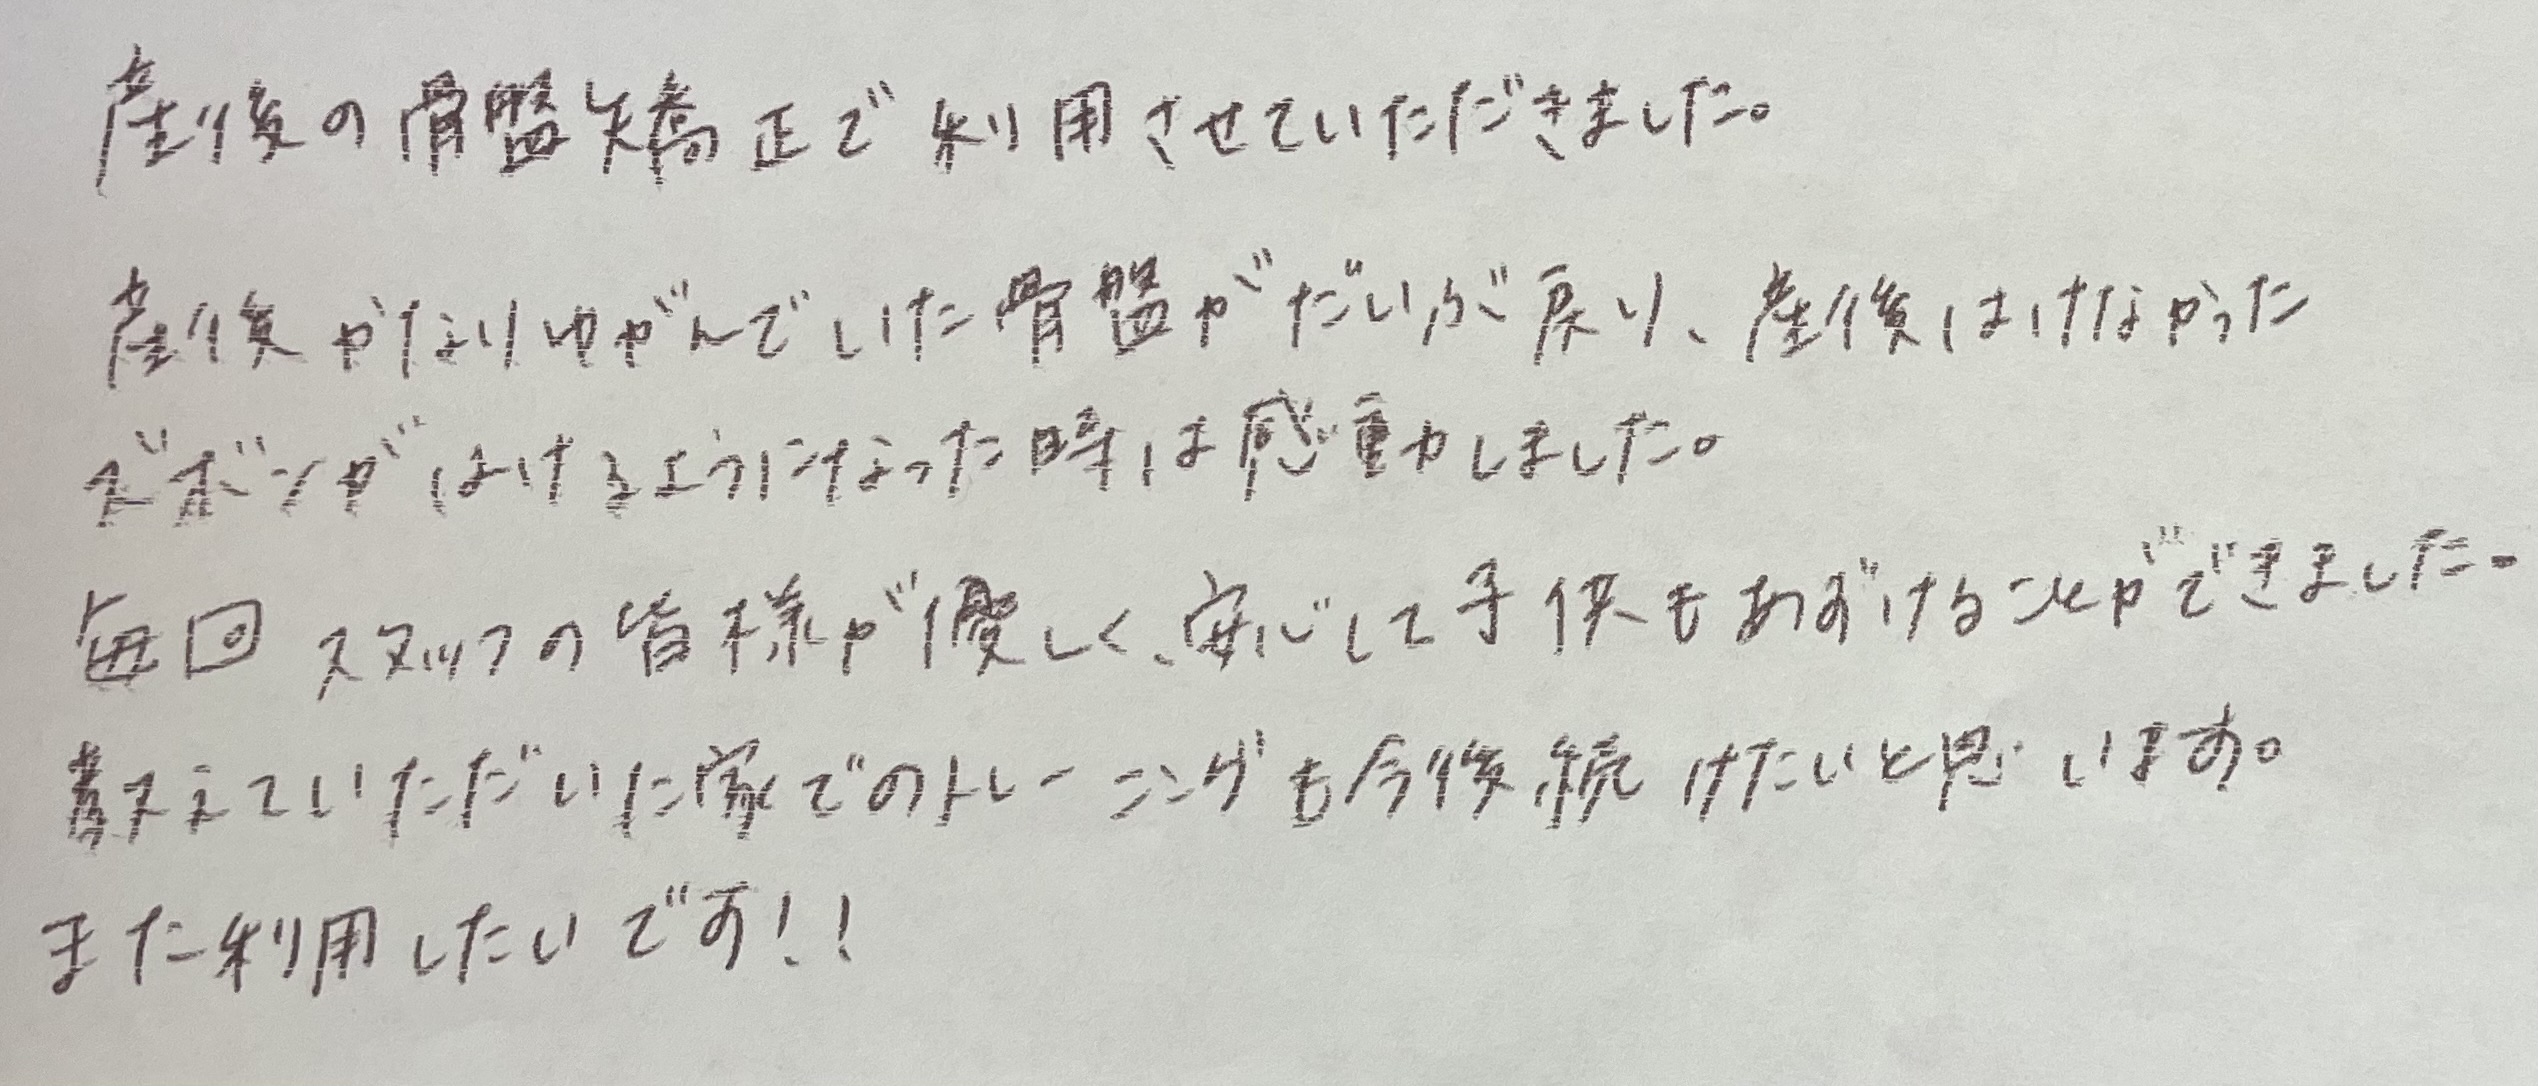 産後の骨盤矯正で利用させていただきました。
産後かなりゆがんでいた骨盤がだいぶ戻り、産後はけなかった
ズボンがはけるようになった時は感動しました。
毎回スタッフの皆様が優しく、安心して子供もあずけることができました。
教えていただいた家でのトレーニングも今後続けたいと思います。
また利用したいです!!